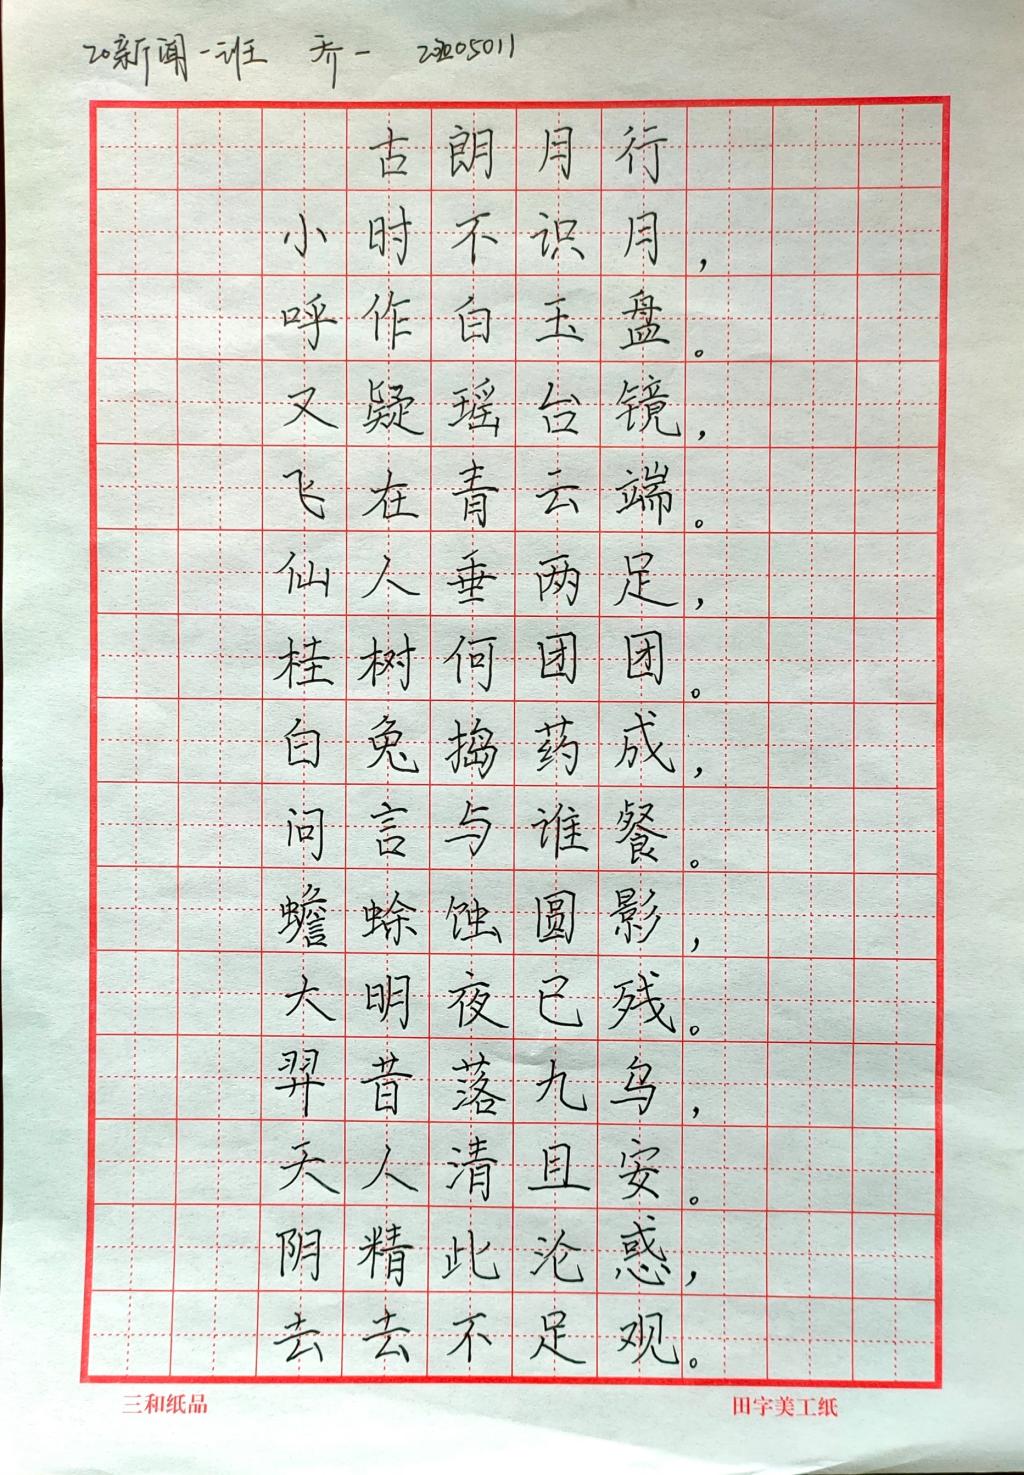 20新闻一班 乔一 20205011
古朗月行
小时不识月，
呼作白玉盘。
又疑瑶台镜，
飞在青云端。
仙人垂两足，
桂树何团团。
白兔捣药成，
问言与谁餐。
蟾蜍蚀圆影，
大明夜已残。
羿昔落九乌，
天人清且安。
阴精此沦惑，
去去不足观。
三和纸品 田字美工纸